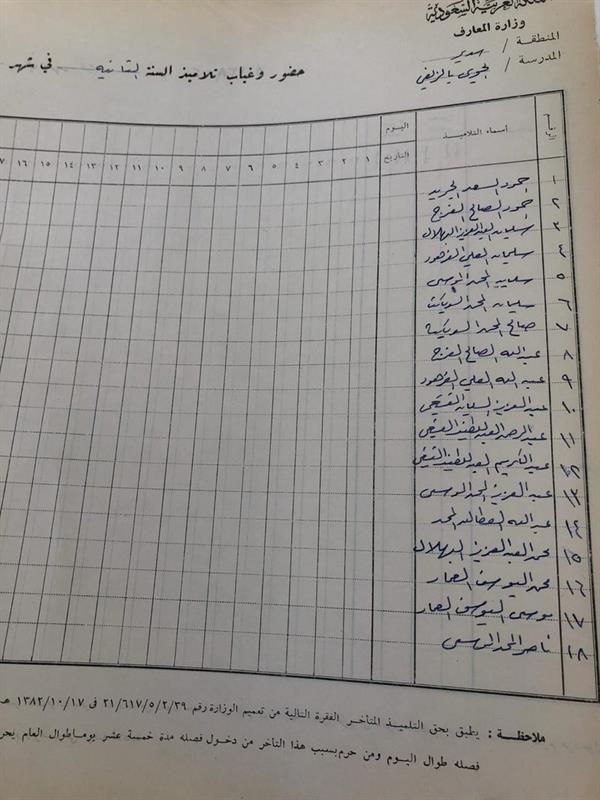 المملكة العربية السعودية
وزارة المعارف
المنطقة / سدير
المدرسة / بالزلفي
حضور وغياب تلاميذ السنة الثانيه في شهر
رقم أسماء التلاميذ اليوم
التاريخ ١ ٢ ٣ ٤ ٥ ٦ ٧ ٨ ٩ ١٠ ١١ ١٢ ١٣ ١٤ ١٥ ١٦ ١٧
١ حمود السعد
٢ حمود الصالح الفرج
٣ سليمان العبدالعزيز البهلال
٤ سليمان العلي الفرهود
٥ المحمد الموسى
٦ سليمان المحمد السويكت
٧ صالح المحمد
٨ عبدالله الصالح الفرج
٩ عبدالله العلي الفرهود
١٠ عبدالعزيز السليمان
١١ عبدالرحمن العبداللطيف
١٢ عبدالكريم العبداللطيف
١٣ عبدالعزيز المحمد الموسى
١٤ عبدالله العطاالله المحمد
١٥ محمد العبدالعزيز البهلال
١٦ محمد اليوسف
١٧ موسى اليوسف
١٨ ناصر المحمد الموسى
ملاحظة : يطبق بحق التلميذ المتأخر الفقرة التالية من تعميم الوزارة رقم ٢١/٦١٧/٥/٢/٣٩ في ١٣٨٢/١٠/١٧ هـ
فصله طوال اليوم ومن حرم بسبب هذا التأخر من دخول فصله مدة خمسة عشر يوما طوال العام يحر